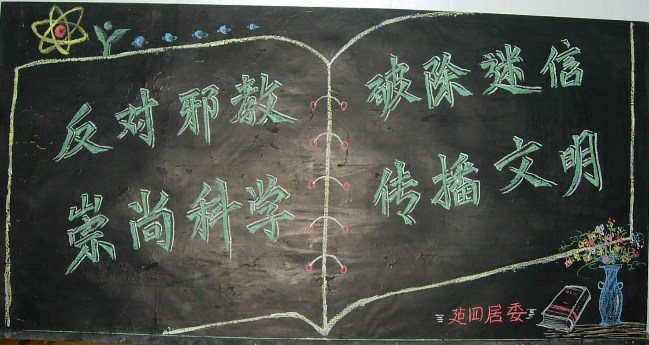 反对邪教
崇尚科学
破除迷信
传播文明
延四居委